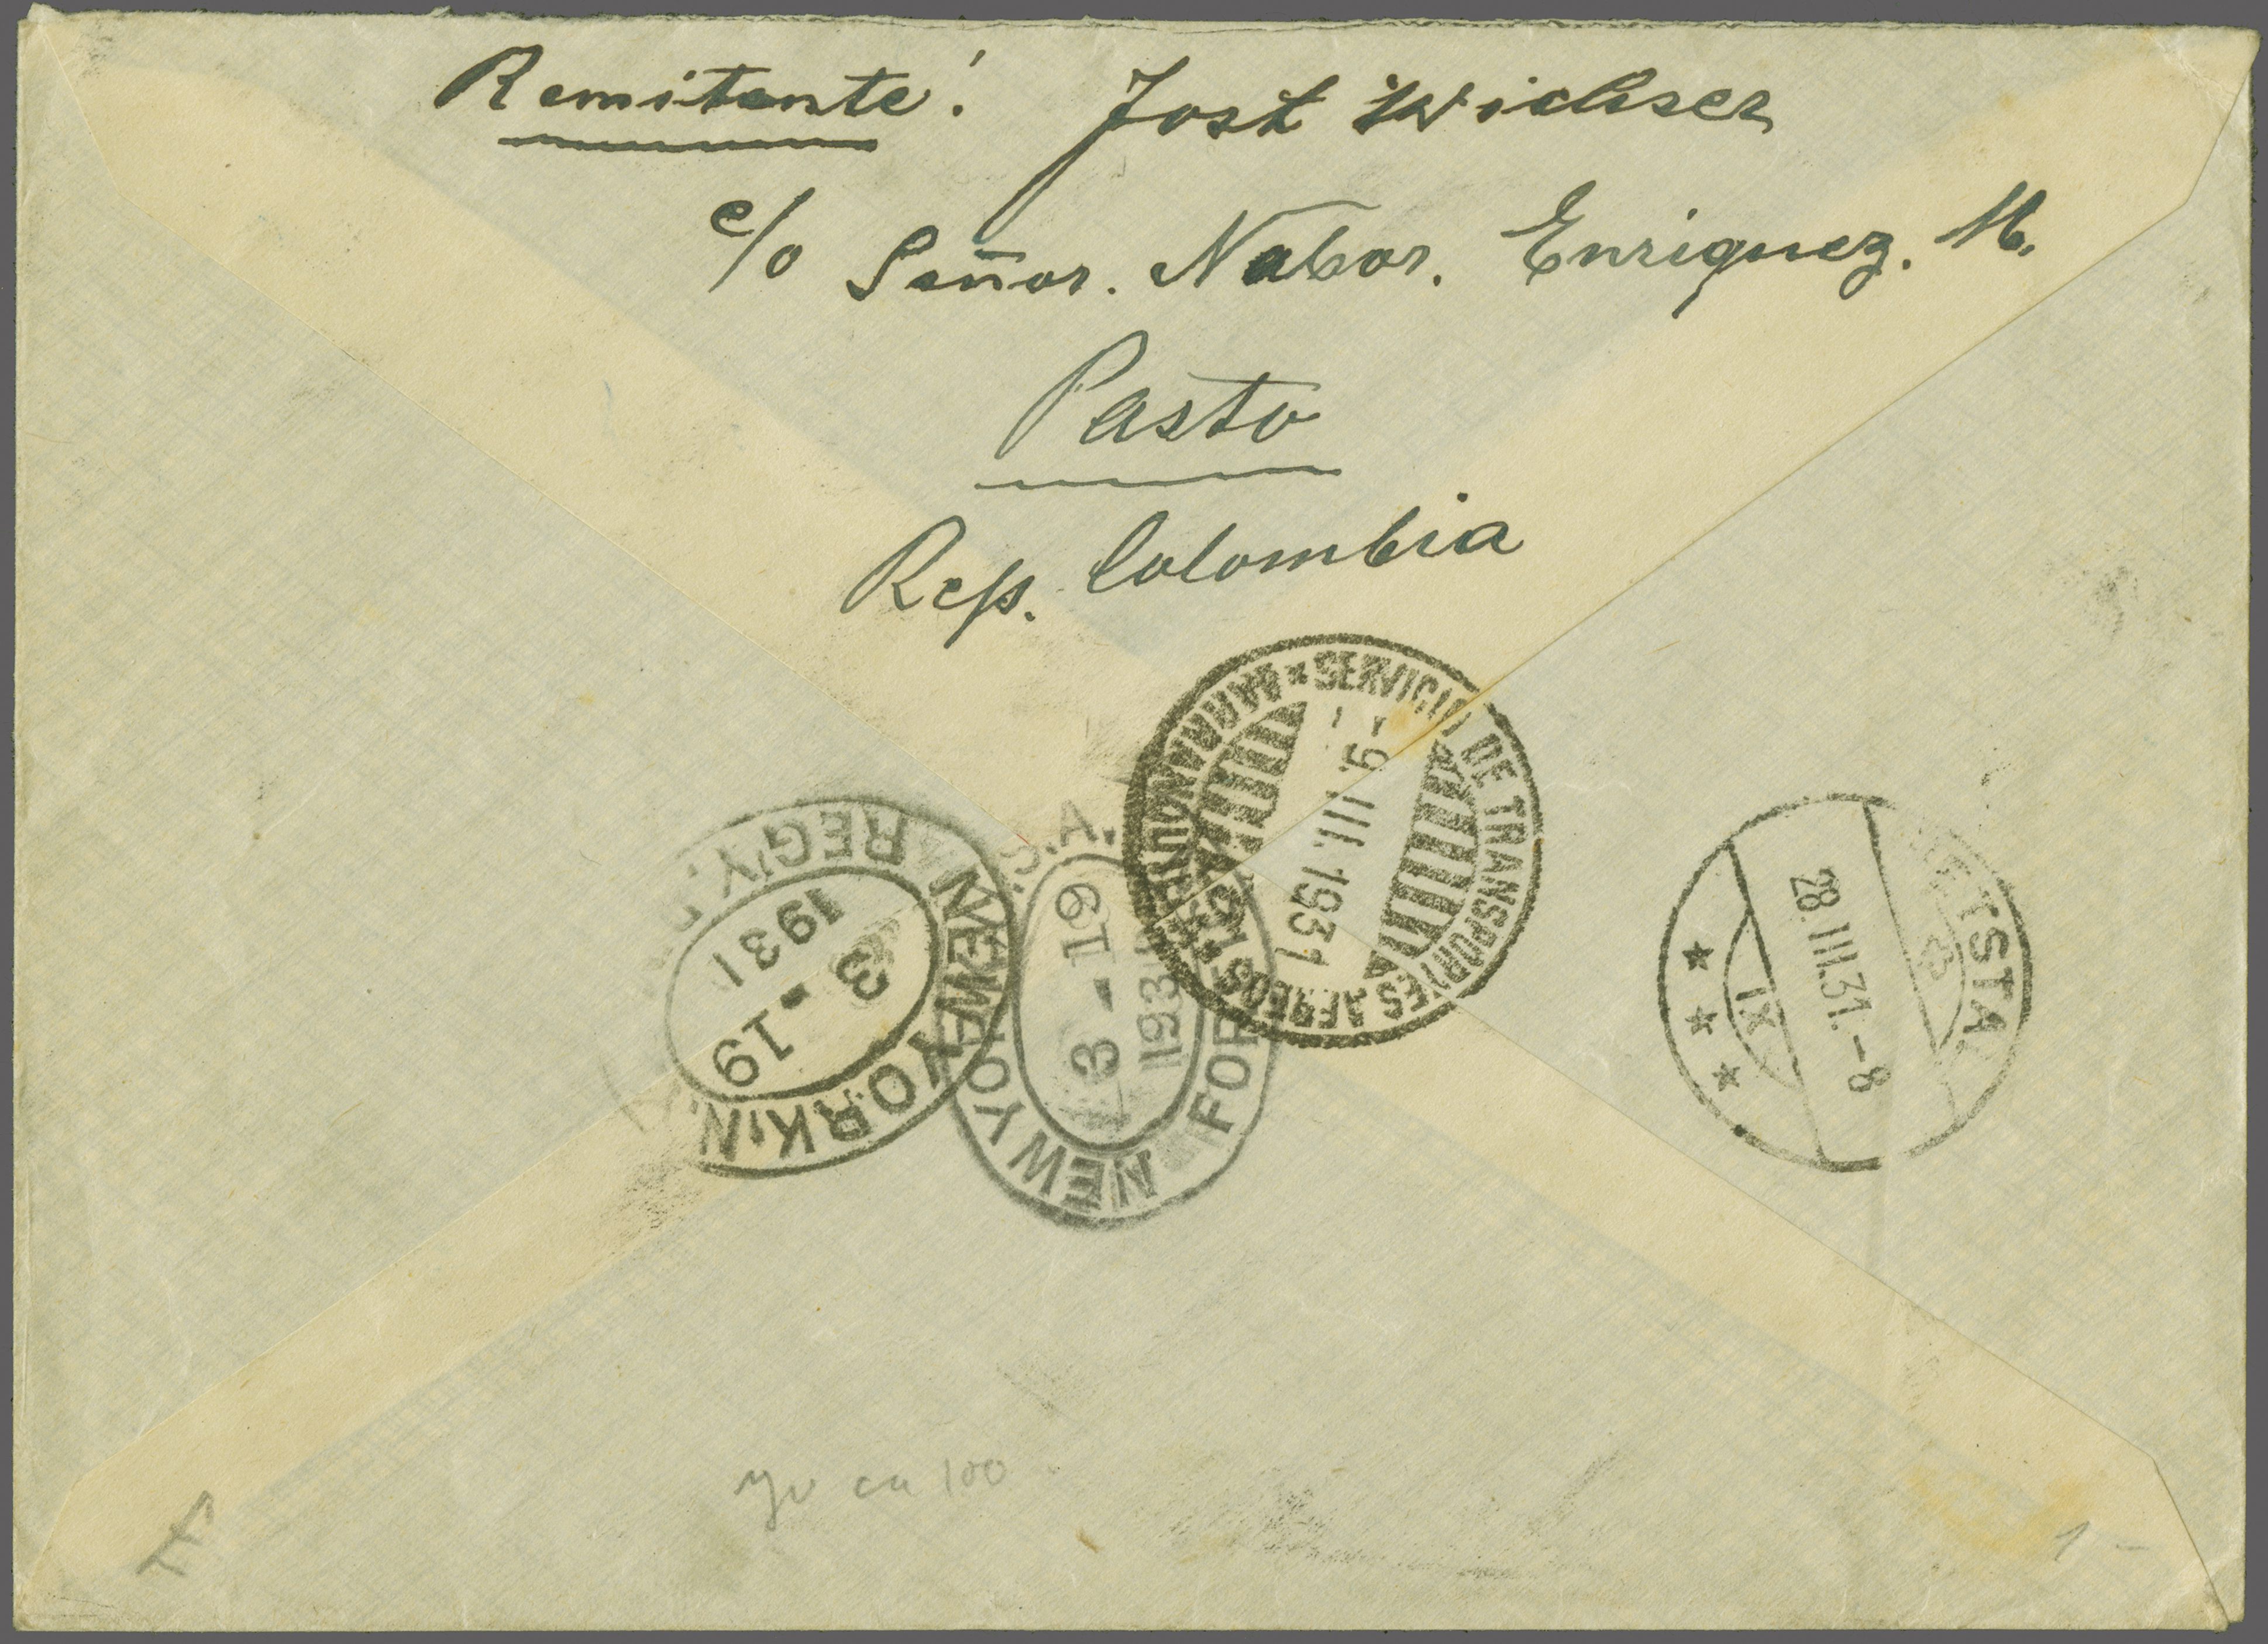 Remitente: Jost Wichser
c/o Señor. Nabor. Enriquez. M.
Pasto
Rep. Colombia
SERVICIO DE TRANSPORTES AEREOS
BARRANQUILLA
-9. III. 1931
REG'Y.
NEW YORK, N.
3 - 19
1931
S.A.
NEW YOR
FOR
3 - 19
1931
TSTAL
28.III.31.-8
IX
ca 100